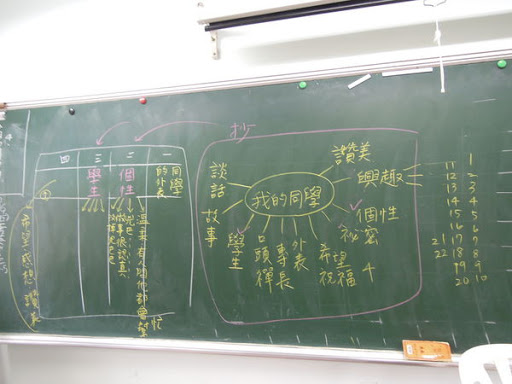 抄
一
二
三
四
同學
的外表
個性
學生
溫柔有
做事很認真
希望、感想、讚美
我的同學
讚美
興趣
個性
祕密
希望
祝福
外表
專長
口頭禪
學生
故事
談話
4
11 1
12 2
13 3
14 4
15 5
16 6
21 17 7
22 18 8
19 9
20 10